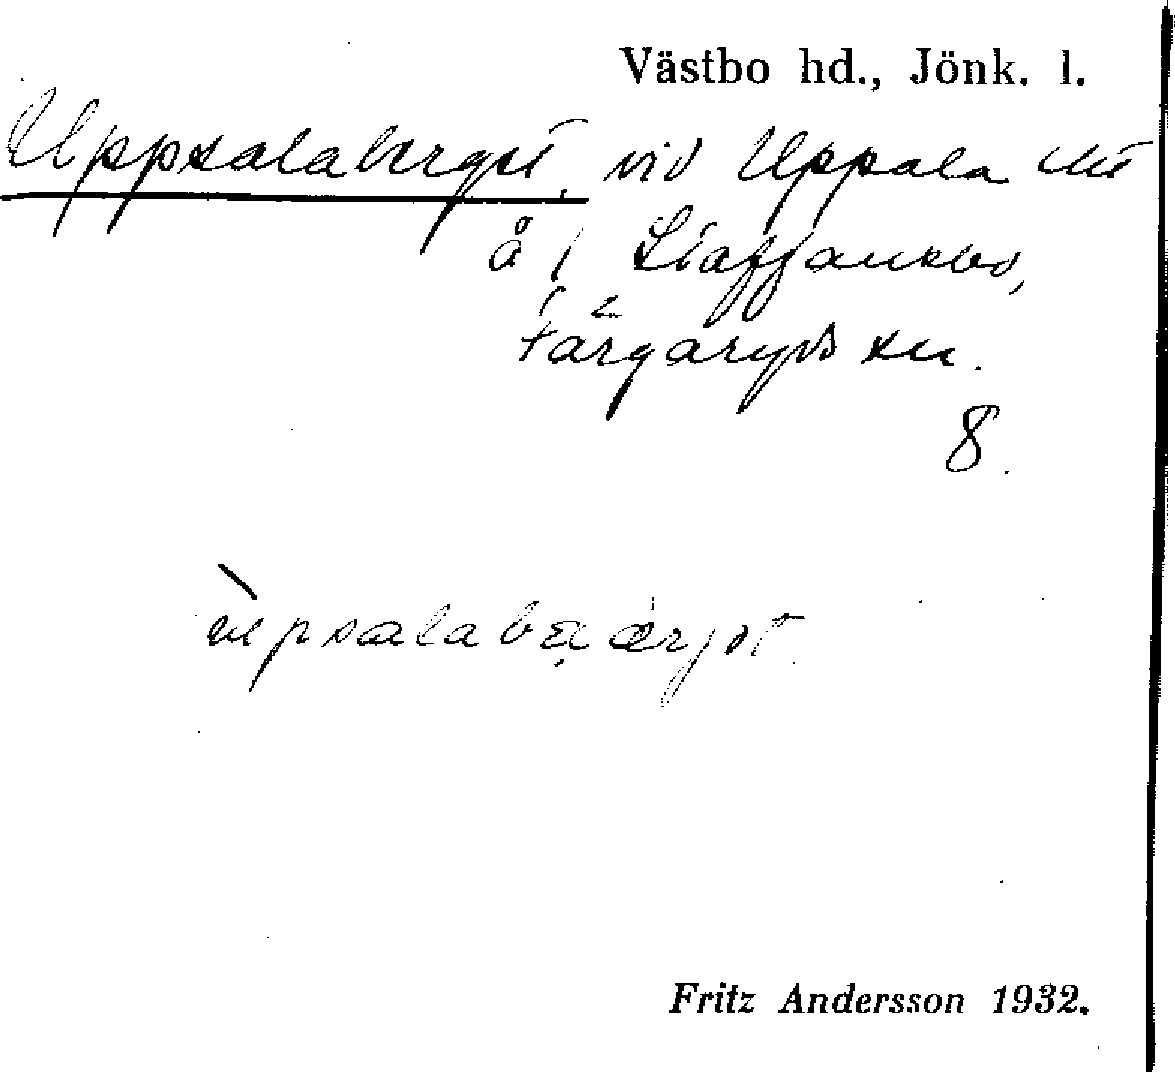 Västbo hd., Jönk. l.
Uppsalaberget, vid Uppsala
å f Staffansbo,
Färgaryds sn.
8.
Fritz Andersson 1932.